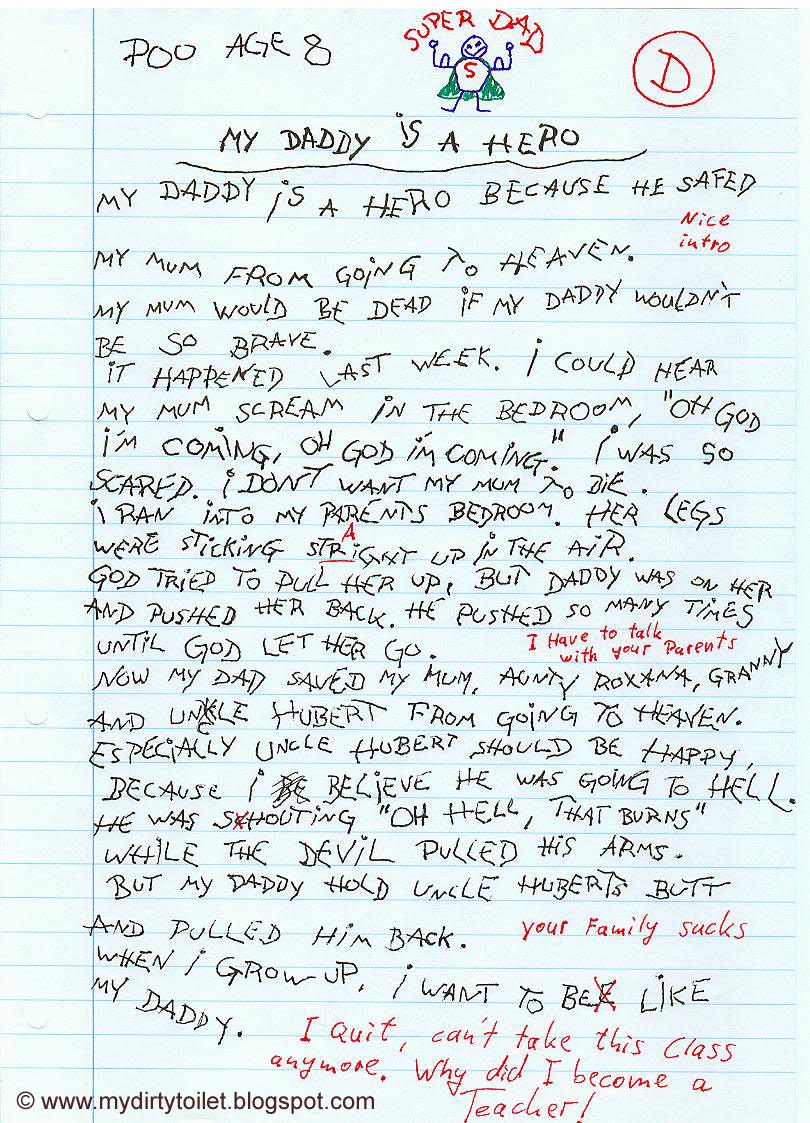 SUPER DAD
POO AGE 8
S
D
MY DADDY iS A HERO
MY DADDY iS A HERO BECAUSE HE SAFED
Nice
intro
MY MUM FROM GOiNG TO HEAVEN.
MY MUM WOULD BE DEAD iF MY DADDY WOULDN'T
BE SO BRAVE.
iT HAPPENED LAST WEEK. i COULD HEAR
MY MUM SCREAM iN THE BEDROOM, "OH GOD
i'M COMiNG, OH GOD i'M COMiNG." i WAS SO
SCARED. i DON'T WANT MY MUM TO DiE.
i RAN iNTO MY PARENTS BEDROOM. HER LEGS
A
WERE STiCKiNG STRiGHT UP iN THE AiR.
GOD TRiED TO PULL HER UP, BUT DADDY WAS ON HER
AND PUSHED HER BACK. HE PUSHED SO MANY TiMES
UNTiL GOD LET HER GO.
I Have to talk
with your Parents
NOW MY DAD SAVED MY MUM, AUNTY ROXANA, GRANNY
AND UNCLE HUBERT FROM GOiNG TO HEAVEN.
ESPECiALLY UNCLE HUBERT SHOULD BE HAPPY,
BECAUSE i BELiEVE HE WAS GOiNG TO HELL.
HE WAS SCHOUTiNG "OH HELL, THAT BURNS"
WHiLE THE DEViL PULLED HiS ARMS.
BUT MY DADDY HOLD UNCLE HUBERTS BUTT
AND PULLED HiM BACK.
your Family sucks
WHEN i GROW UP, i WANT TO BEE LiKE
MY DADDY.
I Quit, can't take this Class
anymore. Why did I become a
Teacher!
© www.mydirtytoilet.blogspot.com